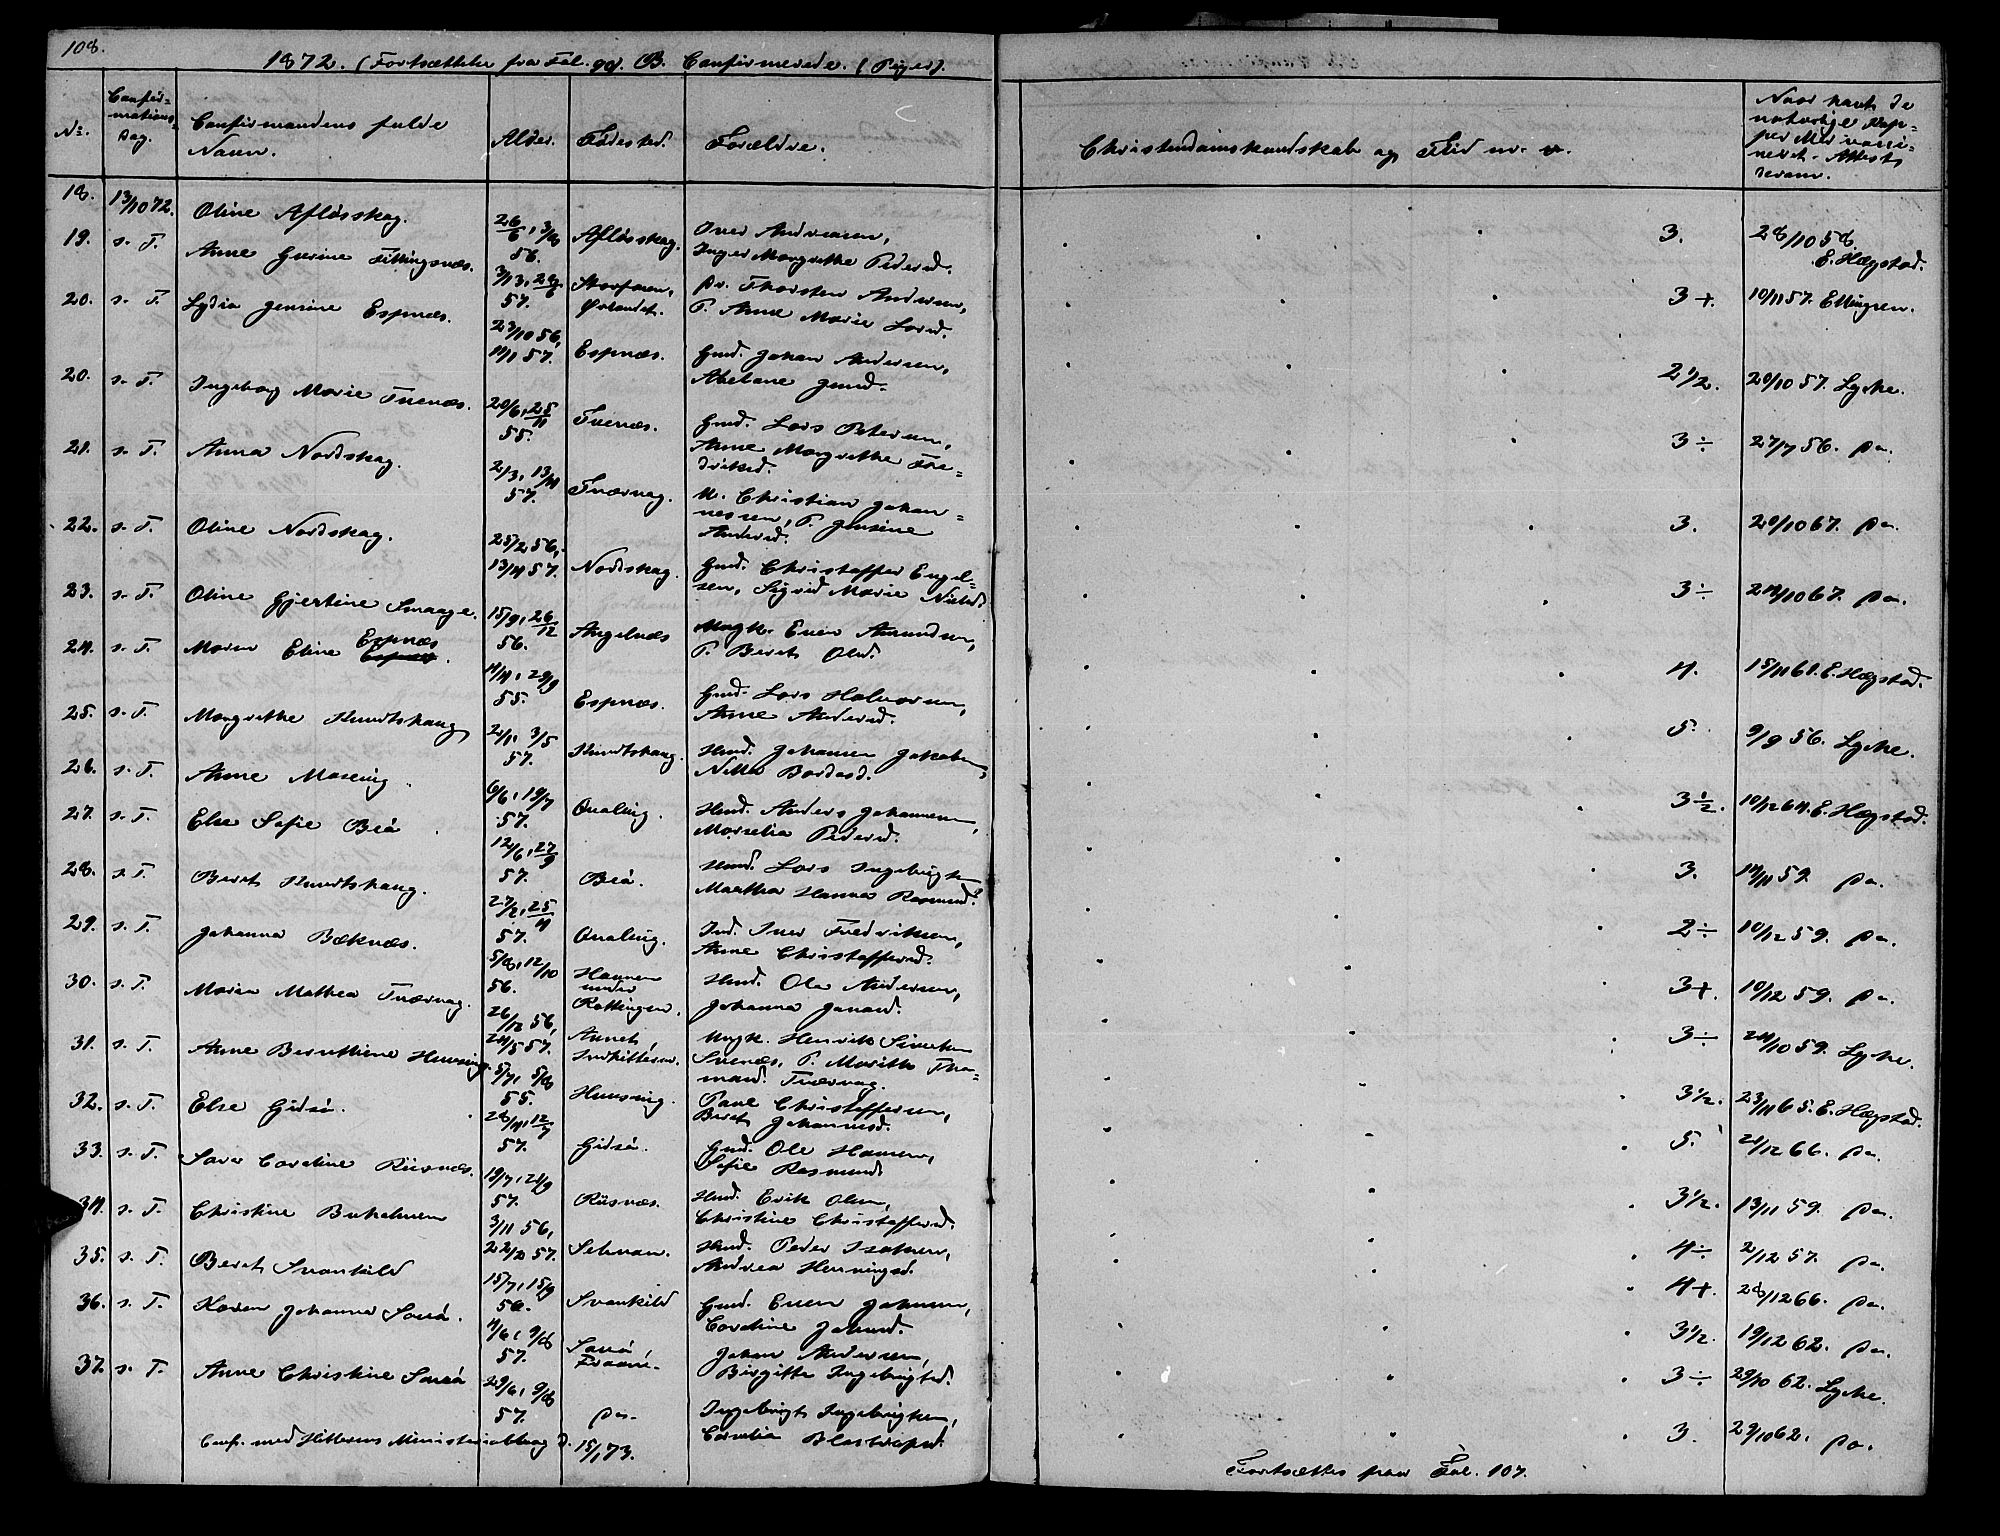 108.
1872. (Fortsættelse fra Fol. 99). B. Confirmerede. (Piger).
No. Confirmations Dag. Confirmandens fulde Navn. Alder. Fødested. Forældre. Christendomskundskab og Flid m. v. Naar havt de naturlige Kopper eller vaccineret. Attest derom.
18. 13/10 72. Oline Afløsskag. 26/6, 3/8 56. Afløsskag. Iver Andersen, Inger Margrethe Pedersd. 3. 28/10 58. E. Hægstad.
19. s. T. Anne Gurine Fillingsnæs. 57. Storfosen, Ørlandet. Thorsten Andersen, P. Anne Marie Larsd. 3+. 10/11 57. Ellingsen.
20. s. T. Lydia Jensine Espnæs. 23/10 56, 11/1 57. Espnæs. Gmd. Johan Andersen, Abelone Jensd. 2 1/2. 20/10 57. Lyche.
20. s. T. Ingeborg Marie Tuenæs. 20/6, 25/11 55. Tuenæs. Gmd. Lars Petersen, Anne Margrethe Fredriksd. 3÷ 27/7 56. do.
21. s. T. Anna Nordskag. 2/3, 13/4 57. Tværvag. U. Christian Johannessen, P. Jensine Andersd. 3. 20/10 67. do.
22. s. T. Oline Nordskag. 25/2 56, 13/4 57. Nordskag. Gmd. Christoffer Engelsen, Sigrid Marie Nielsd. 3÷ 24/10 67. do.
23. s. T. Oline Gjertine Smaage. 15/9, 26/12 56. Angelnæs Ungk. Even Amundsen, P. Beret Olsd. 4. 15/11 61. E. Hægstad.
24. s. T. Maren Eline Espnæs. 4/4, 29/9 55. Espnæs. Gmd. Lars Halvorsen, Anne Andersd. 5. 9/9 56. Lyche.
25. s. T. Margrethe Knudtshaug 2/1, 3/5 57. Knudtshaug. Hmd. Johannes Jakobsen, Nella Bardosd. 3 1/2. 10/12 64. E. Hægstad.
26. s. T. Anne Masevig. 6/6, 19/7 57. Qualvig. Hmd. Anders Johannesen, Marselia Pedersd. 3. 14/11 59. do.
27. s. T. Else Sofie Beø. 12/6, 27/9 57. Beø. Hmd. Lars Ingebrigtsen Maatha Hanna Rasmusd. 2÷ 10/12 59. do.
28. s. T. Beret Knudtshaug. 27/2, 25/4 57. Qualvig. Ind. Iver Fredriksen, Anne Christoffersd. 3+. 10/12 59. do.
29. s. T. Johanna Bæknæs. 5/8, 12/10 56. Havnen under Rottingen. Hmd. Ole Andersen, Johanna Jonasd. 3÷ 24/10 59. Lyche.
30. s. T. Maren Mathea Tværvag. 26/12 56, 24/5 57. Annet Indhitteren. Ungk. Henrik Sivertsen Svenæs, P. Marith Thomasd. Tværvag. 3 1/2. 23/11 65. E. Hægstad.
31. s. T. Anne Berntine Hemsvig. 5/7, 5/8 55. Hemsvig. Paul Christoffersen, Beret Johannesd. 5. 21/12 66. do.
32. s. T. Else Gidsø. 28/4, 12/7 57. Gidsø. Gmd. Ole Hansen, Sofie Rasmusd. 3 1/2. 13/11 59. do.
33. s. T. Sara Caroline Riisnæs. 19/7, 21/9 57. Riisnæs. Hmd. Erik Olsen, Christine Christoffersd. 4÷ 2/12 57. do.
34. s. T. Christine Bukholmen 3/11 56, 22/2 57. Selvaan. Hmd. Peder Isaksen, Andrea Henningsd. 4+. 28/12 66. do.
35. s. T. Beret Svankild 15/7, 15/9 56. Svankild Gmd. Even Johnsen, Caroline Johnsd. 3 1/2. 19/12 62. do.
36. s. T. Karen Johanna Sonø. 4/6, 9/8 57. Sonø Frøen. Johan Andersen, Birgitte Ingebrigtsd. 3÷ 29/10 62. Lyche.
37. s. T. Anne Christine Sonø 29/6, 9/8 57. do. Ingebrigt Ingebrigtsen, Cornelia 3. 29/10 62. do.
Conf. med Hitterens Ministerialbog d. 15/1 73.
Fortsættes paa Fol. 107.